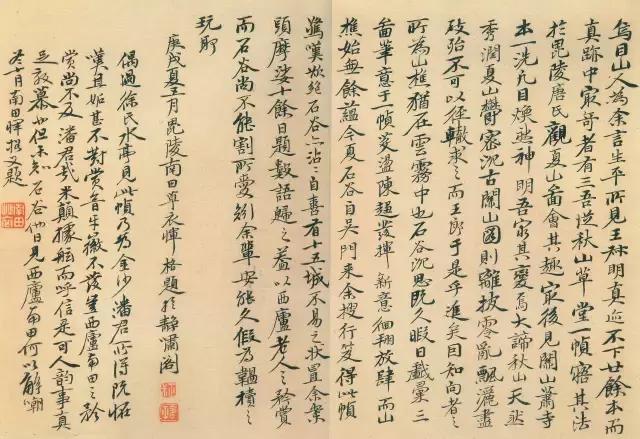 烏目山人為余言生平所見王叔明真迹不下廿餘本而
真跡中最奇者有三吾從秋山草堂一幀寤其法
於毘陵唐氏觀夏山圖會其趣最後見關山蕭寺
本一洗凡目煥然神明吾窮其變焉大諦秋山天然
秀潤夏山鬱密沉古關山圖則離披零亂飄灑盡
致殆不可以徑轍求之而王郎于是乎進矣因知向者之
所為山樵猶在雲霧中也石谷沉思既久暇日戲彙三
啚筆意于一幀滌盪陳趨發揮新意徊翔放肆而山
樵始無餘蘊今夏石谷自吳門来余搜行笈得此幀
驚嘆欲絕石谷亦沾沾自喜有十五城不易之狀置余案
頭摩娑十餘日題數語歸之葢以西廬老人之矜賞
而石谷尚不能割所愛矧余輩安能久假為韞櫝之
玩耶
庚戌夏五月毘陵南田草衣惲格題於靜嘯閣
偶過徐氏水亭見此幀乃為金沙潘君所得既怪
嘆且妬甚不對賞音牙徽不發豈西廬南田之矜
賞尚不及潘君哉米顛據舷而呼信是可人韵事真
足效慕也但未知石谷他日見西廬南田何以觧嘲
冬十月南田惲格又題